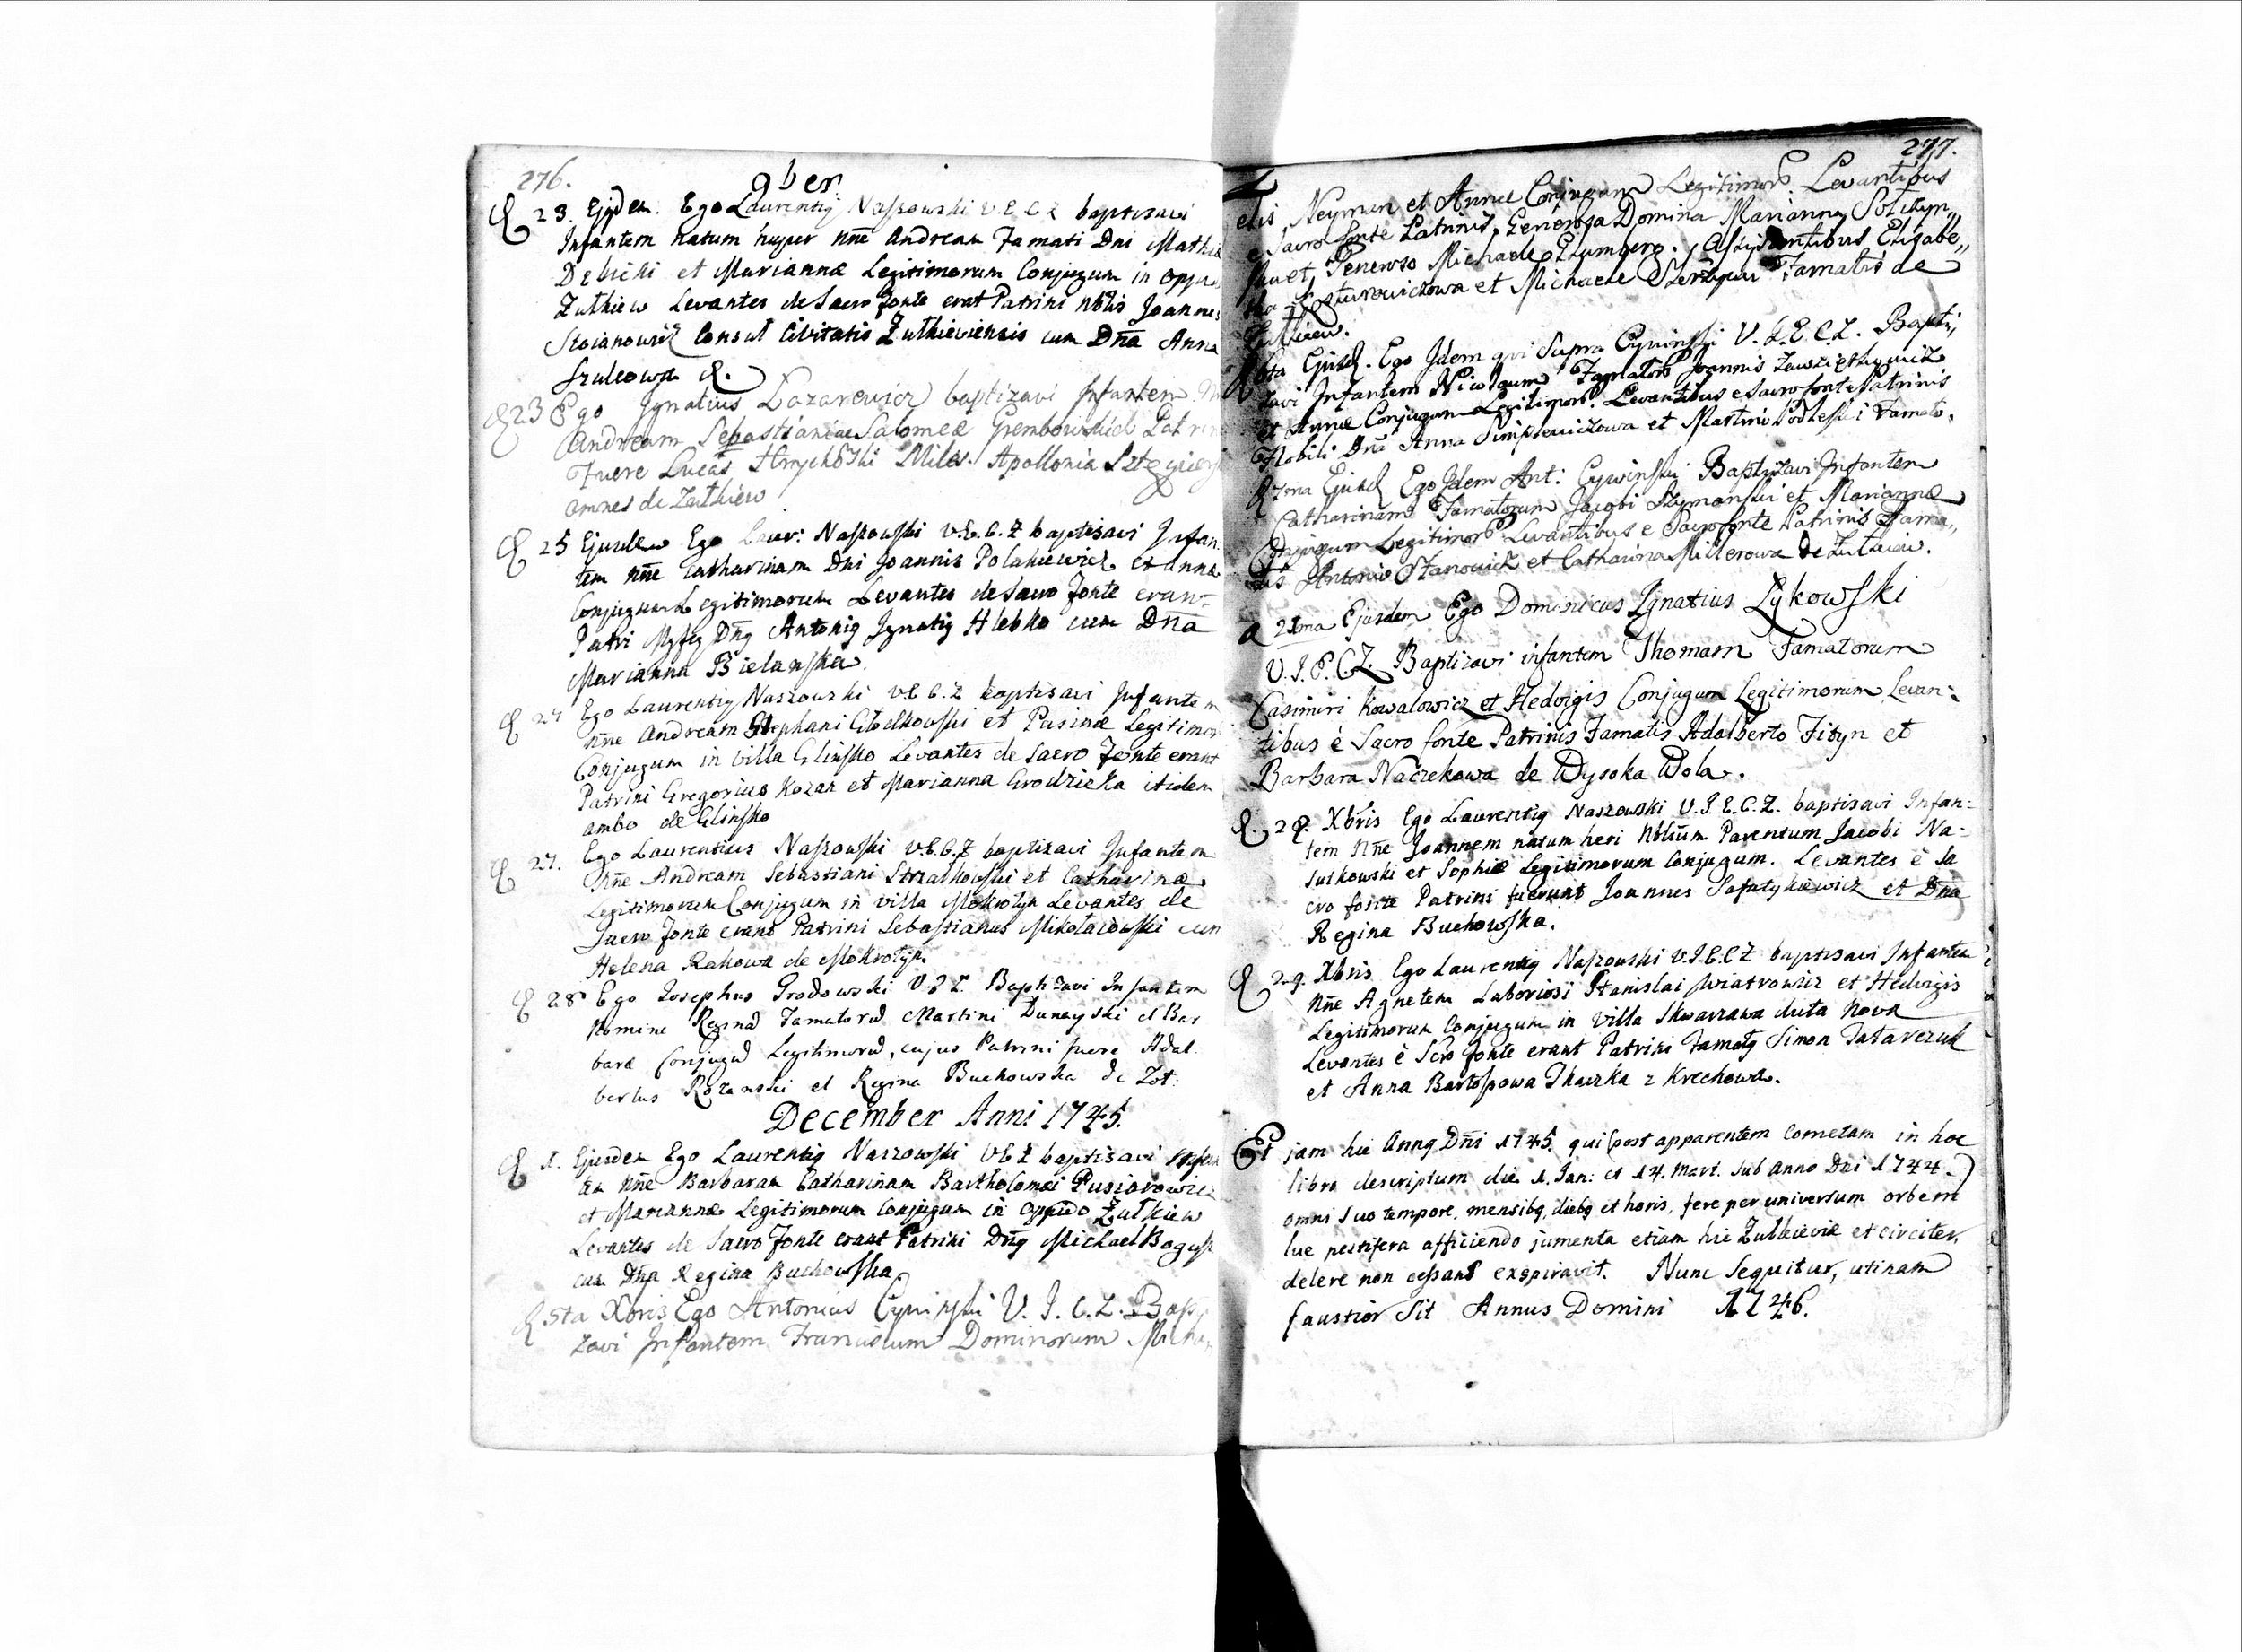 276.
9ber
23. Ejusdem. Ego Laurentiq Naszowski V.E.C.Z baptisavi
Infantem natum nuper Nñe Andream Famati Dni Mathia
Debicki et Mariannæ Legitimorum Conjugum in Oppido
Zułkiew Levantes de Sacro Fonte erat Patrini Nblis Joannes
Stoianowicz Consul Civitatis Zułkieviensis cum Dña Anna
Szulcowa
23 Ego Ignatius Lazarewicz baptizavi Infantem
Andream Sebastiani et Salomeæ Grembowskich Patrini
Fuere Lucas Miles. Apollonia
omnes de Zułkiew
25 Ejusdem Ego Laur: Naszowski V.E.C.Z baptisavi Infan:
tem Nñe Catharinam Dni Joannis Polakiewicz et Anna
Conjugum Legitimorum Levantes de Sacro Fonte eran-
Patri Dñq Antoniq Ignatiq Hlebko cum Dña
Marianna Bielanska.
27 Ego Laurentiq Naszowski V.E.C.Z baptisavi Infantem
Nñe Andream Stephani et Legitimor
Conjugum in villa Glinsko Levantes de Sacro Fonte erant
Patrini Gregorius Kozar et Marianna Grodzicka itidem
ambo de Glinsko
27. Ego Laurentius Naszowski V.E.C.Z baptizavi Infantem
Nñe Andream Sebastiani Strzałkowski et Catharinæ
Legitimorum Conjugum in villa Mokrotyn Levantes de
Sacro Fonte erant Patrini Sebastianus Mikołaiowski cum
Helena Rakowa de Mokrotyn.
28 Ego Josephus Grodowski Baptizavi Infantem
Nomine Reginã Famatorũ Martini Dunayski et Bar
baræ Conjugũ Legitimorũ, cujus Patrini fuere Adal.
bertus Rozanski et Regina Buchowska de Zoł.
December Anni 1745.
1. Ejusdem Ego Laurentiq Naszowski V.E.Z baptisavi Infan
am Nñe Barbaram Catharinam Bartholomæi
et Mariannæ Legitimorum Conjugum in Oppido Zułkiew
Levantes de Sacro Fonte erant Patrini Dñq Michael
cum Dña Regina Buchowska
5ta Xbris Ego Antonius Cywinski V.J.C.Z. Bapti
zavi Infantem Franciscum Dominorum Micha
277.
elis Neyman et Annæ Conjugum Legitimorũ. Levantibus
e Sacro fonte Patrinis, Generosa Domina Marianna
et, Generoso Michaele Plumberg. Assistentibus Elisabe,,
tha et Michaele Famatis de
Zułkiew.
6ta Ejusd. Ego Idem qui Supra Cywinski V.J.E.C.Z. Bapti,,
zavi Infantem Famatorũ Joannis
et Annæ Conjugum Legitimorũ. Levantibus e Sacro fonte Patrinis
Nobili Dnã Anna et Martino Famato.
7ma Ejusd Ego Idem Ant: Cywinski Baptizavi Infantem
Catharinam Famatorum Jacobi Szymanski et Mariannæ
Conjugum Legitimorũ Levantibus e Sacro fonte Patrinis Fama,,
tis Antonio et Catharina Millerowa de Zułkiew.
21ma Ejusdem Ego Dominicus Ignatius Łykowski
V.J.E.C.Z. Baptizavi infantem Thomam Famatorum
Casimiri Kowalowicz et Hedvigis Conjugum Legitimorum Levan:
tibus è Sacro fonte Patrinis Famatis Adalberto Fityn et
Barbara Naczekowa de Wysoka Wola.
Xbris Ego Laurentiq Naszowski V.J.E.C.Z. baptisavi Infan:
tem Nñe Joannem natum heri Nbliũm Parentum Jacobi Na-
sutkowski et Sophiæ Legitimorum Conjugum. Levantes è Sa
cro fonte Patrini fuerunt Joannes Safatykiewicz et Dña
Regina Buchowska.
29. Xbris Ego Laurentiq Naszowski V.J.E.C.Z baptisavi Infantem
Nñe Agnetem Laboriosi Stanislai Swiatrowicz et Hedvigis
Legitimorum Conjugum in Villa Skwarzawa dicta Nova
Levantes è Scro fonte erant Patrini Famatq Simon Tatarczuk
et Anna Bartoszowa Tkaczka z Krechowa.
Et jam hic Annq Dñi 1745. qui (post apparentem Cometam in hoc
libro descriptum die 1. Jan: et 14. Mart. sub Anno Dni 1744.)
omni suo tempore, mensibq, diebq et horis, fere per universum orbem
lue pestifera afficiendo jumenta etiam hic Zułkieviæ et circiter,
delere non cessans exspiravit. Nunc sequitur, utinam
faustior sit Annus Domini 1746.